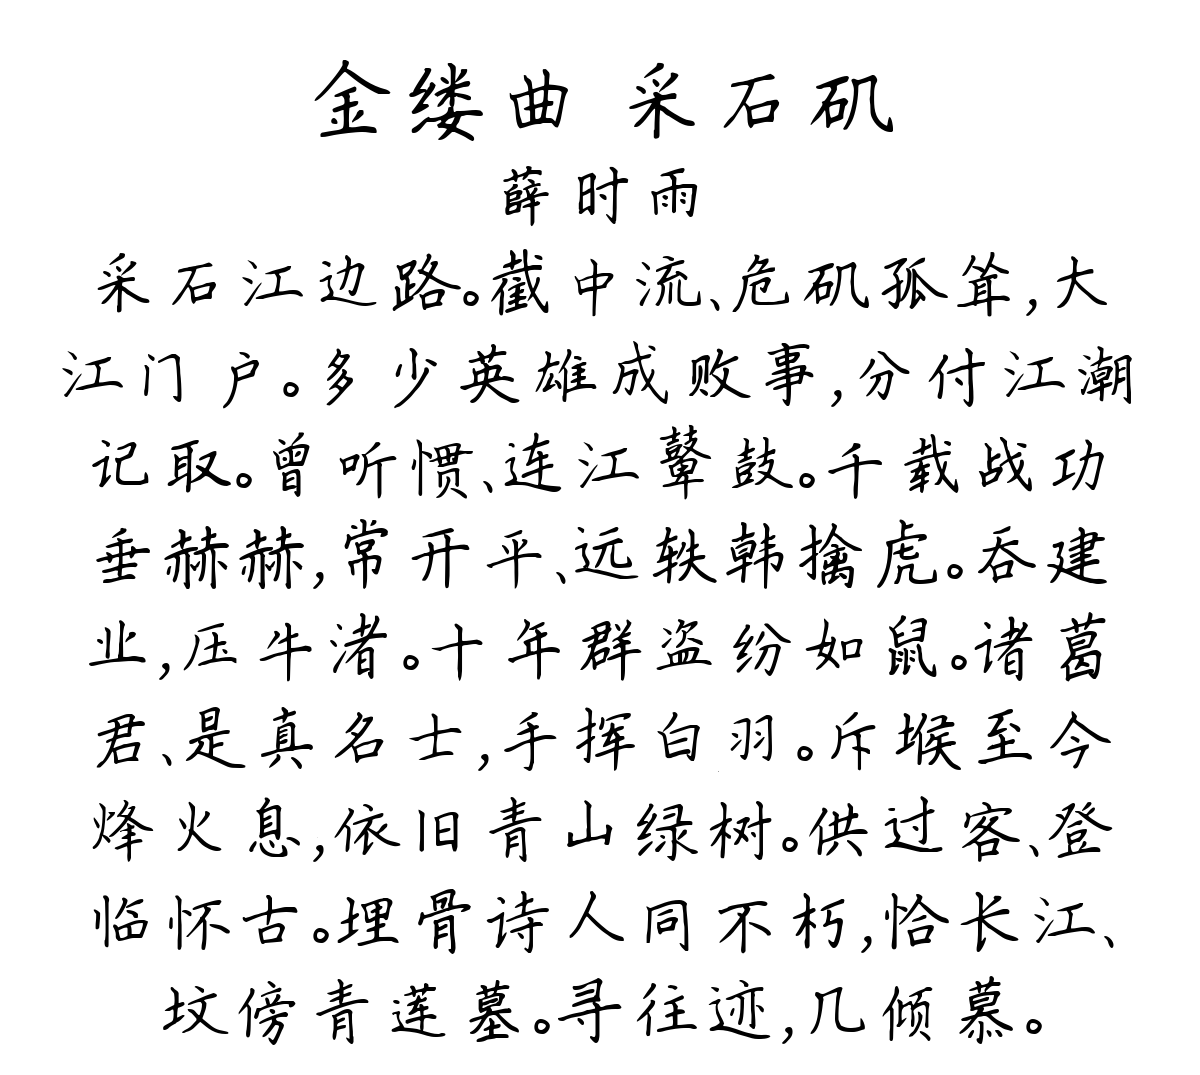 金缕曲 采石矶
薛时雨
采石江边路。截中流、危矶孤耸,大
江门户。多少英雄成败事,分付江潮
记取。曾听惯、连江鼙鼓。千载战功
垂赫赫,常开平、远轶韩擒虎。吞建
业,压牛渚。十年群盗纷如鼠。诸葛
君、是真名士,手挥白羽。斥堠至今
烽火息,依旧青山绿树。供过客、登
临怀古。埋骨诗人同不朽,恰长江、
坟傍青莲墓。寻往迹,几倾慕。